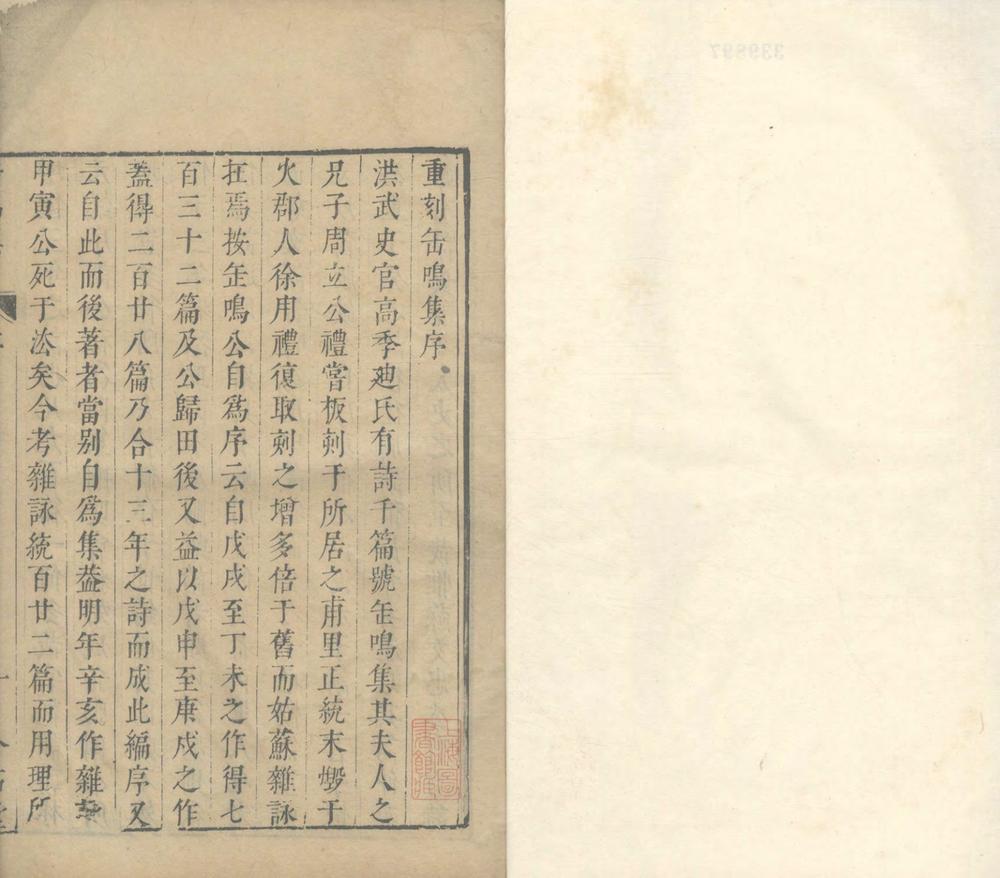 重刻缶鳴集序
洪武史官高季廸氏有詩千篇號缶鳴集其夫人之
兄子周立公禮嘗板刻于所居之甫里正統末燬于
火郡人徐用禮復取刻之增多倍于舊而姑蘇雜詠
在焉按缶鳴公自爲序云自戊戌至丁未之作得七
百三十二篇及公歸田後又益以戊申至庚戌之作
蓋得二百廿八篇乃合十三年之詩而成此編序又
云自此而後著者當别自爲集葢明年辛亥作雜詠
甲寅公死于法矣今考雜詠統百廿二篇而用理所
上海圖書館藏
339897